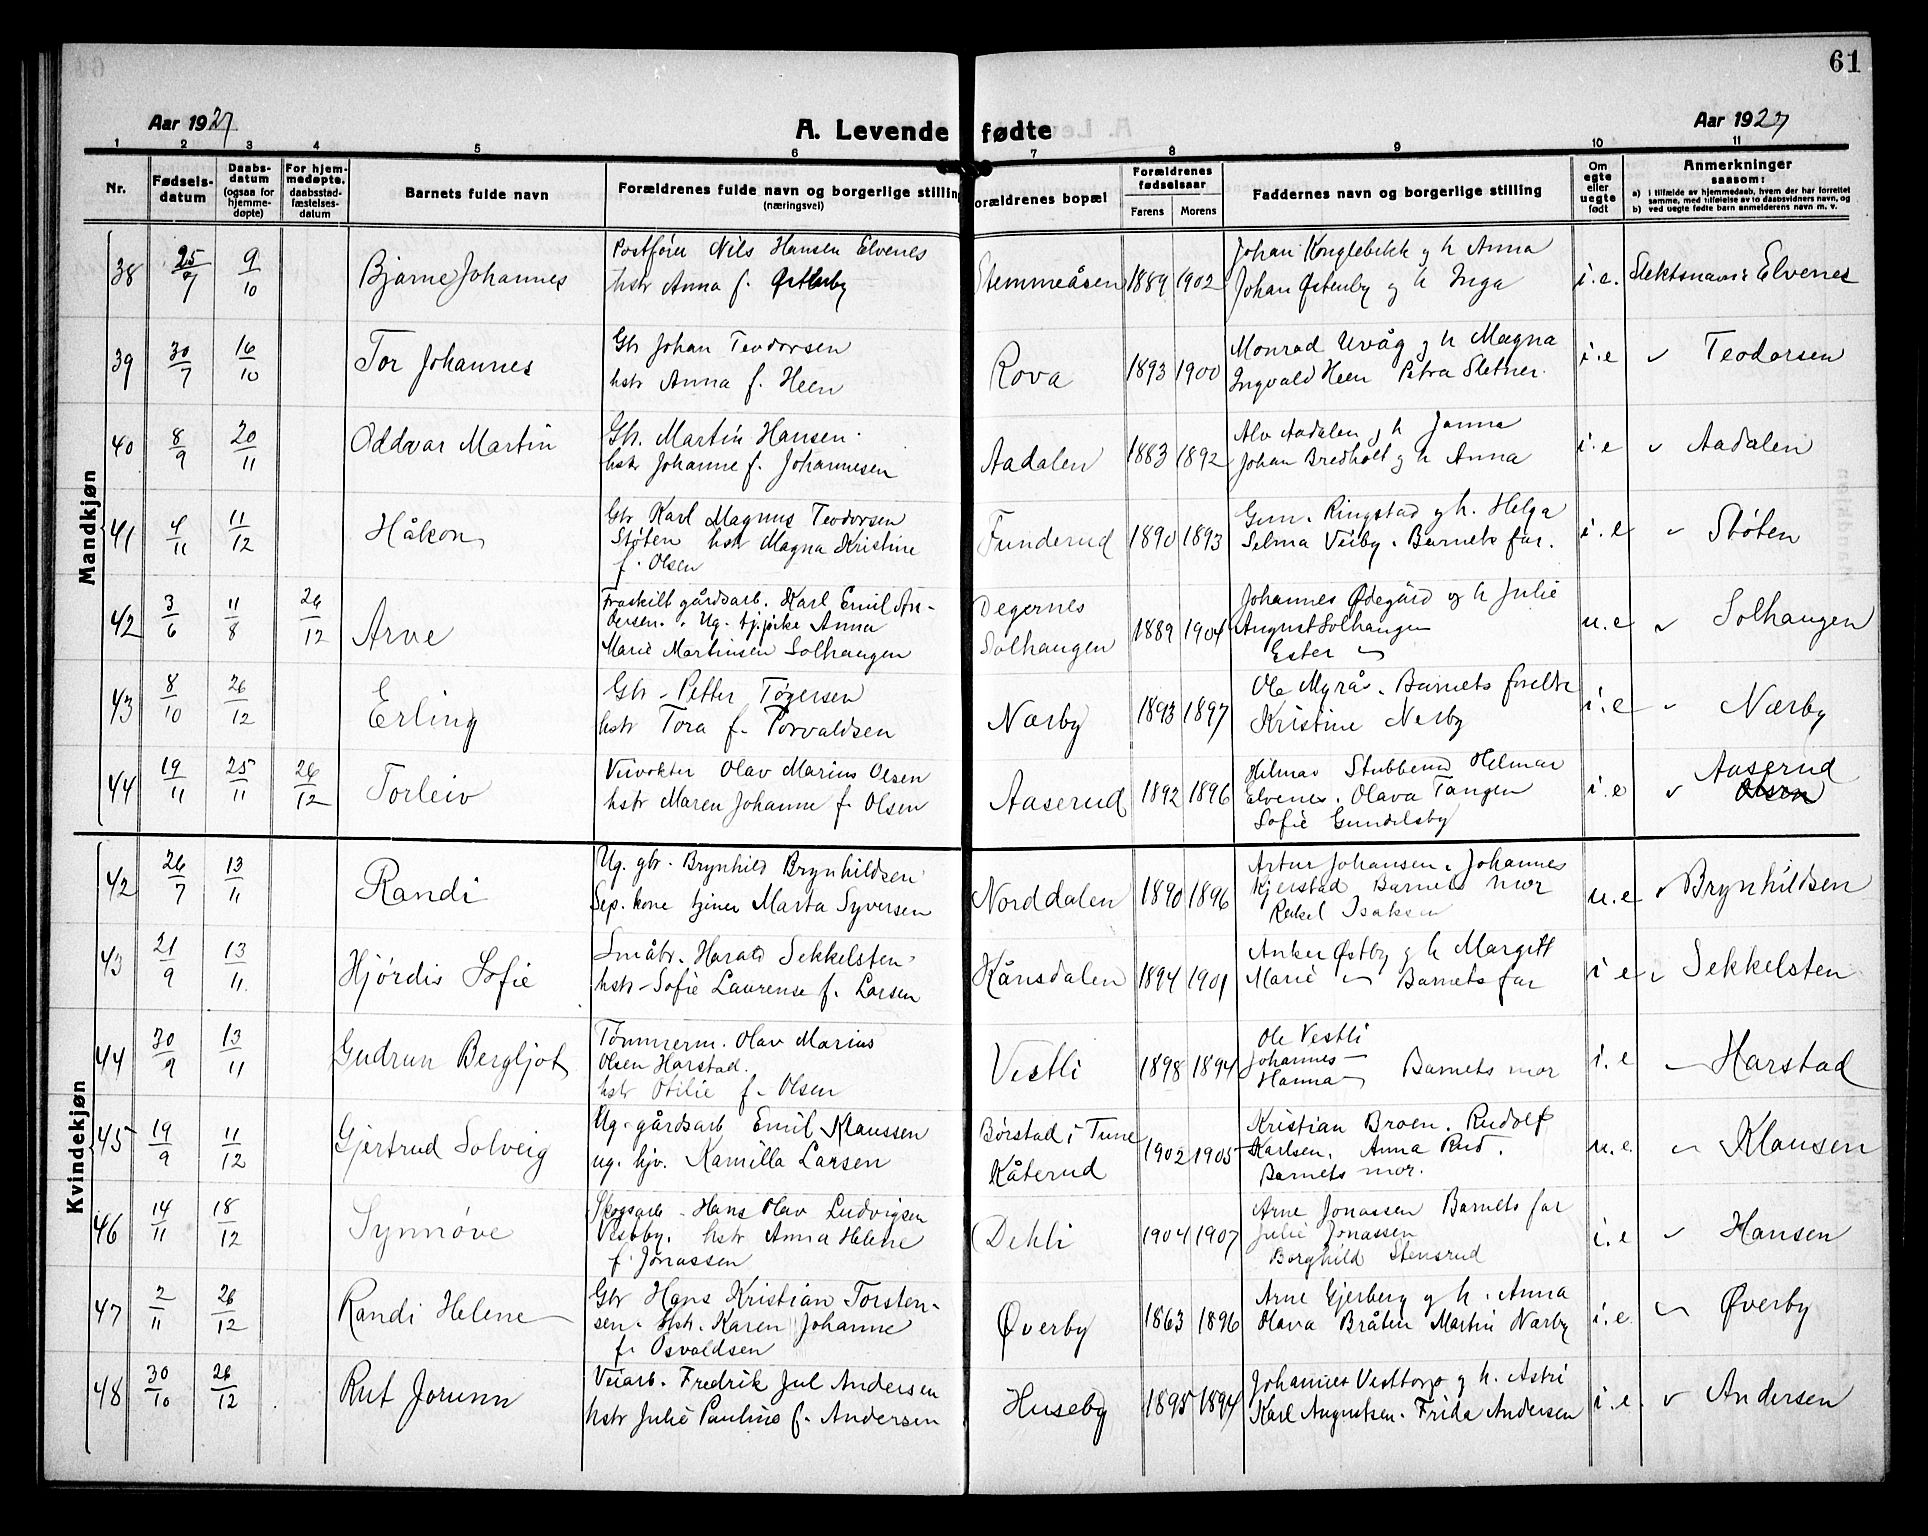 61
Aar 1927
A. Levende fødte
Aar 1927
1 2 3 4 5 6 7 8 9 10 11
Nr.
Fødsels-
datum
Daabs-
datum
(ogsaa for
hjemme-
døpte)
For hjem-
medøpte.
daabsstad-
fæstelses-
datum
Barnets fulde navn
Forældrenes fulde navn og borgerlige stilling
(næringsvei)
Forældrenes bopæl
Forældrenes
fødselsaar
Farens Morens
Faddernes navn og borgerlige stilling
Om
egte
eller
uegte
født
Anmerkninger
saasom:
a) i tilfælde av hjemmedaab, hvem der har forrettet
samme, med tilføielse av to daabsvidners navn, og
b) ved uegte fødte barn anmelderens navn m. v.
Mandkjøn
38 25/7 9/10 Bjarne Johannes
Postfører Nils Hansen Elvenes
hstr Anna f. Østenby
Stemmeåsen 1889 1902
Johan Konglebekk og h Anna
Johan Østenby og h Inga
i.e. Slektsnavn: Elvenes
39 30/7 16/10 Tor Johannes
Gbr Johan Teodorsen
hstr Anna f. Heen
Rova 1893 1900
Monrad Uvåg og h Magna
Ingvald Heen Petra Sletner.
i.e " Teodorsen
40 8/9 20/11 Oddvar Martin
Gbr. Martin Hansen.
hstr Johanne f. Johannesen
Aadalen 1883 1892
Alv Aadalen og h Janna
Johan Bredholt og h Anna
i.e " Aadalen
41 4/11 11/12 Håkon
Gbr Karl Magnus Teodorsen
Støten hstr Magna Kristine
f. Olsen
Funderud 1890 1893
Gun. Ringstad og h. Helga
Selma Veiby. Barnets far.
i.e " Støten
42 3/6 11/8 26/12 Arve
Fraskilt gårdsarb. Karl Emil An-
dersen. Ug. tj.pike Anna
Marie Martinsen Solhaugen
Degernes
Solhaugen 1889 1904
Johannes Ødegård og h Julie
August Solhaugen
Ester "
u.e " Solhaugen
43 8/10 26/12 Erling
Gbr - Petter Tøgersen
hstr Tora f. Torvaldsen
Nærby 1893 1897
Ole Myrå. Barnets foreldre
Kristine Nærby
i.e " Nærby
44 19/11 25/11 26/12 Torleiv
Veivokter Olav Marius Olsen
hstr Maren Johanne f. Olsen
Aaserud 1892 1896
Hilmar Stubberud Helmar
Elvenes. Olava Tangen
Sofie Gundelsby
i.e " Aaserud
Olsen
Kvindekjøn
42 26/7 13/11 Randi
Ug. gbr. Brynhild Brynhildsen
Sep. kone tjener Marta Syversen
Norddalen 1890 1896
Artur Johansen. Johannes
Kjerstad Barnets mor
Rakel Isaksen
u.e " Brynhildsen
43 21/9 13/11. Hjördis Sofie
Småbr. Harald Sekkelsten
hstr - Sofie Laurense f. Larsen
Kånsdalen 1894 1901
Anker Østby og h Margitt
Marie " Barnets far
i e " Sekkelsten
44 30/9 13/11 Gudrun Bergljot
Tømmerm. Olav Marius
Olsen Harstad.
hstr Otilie f. Olsen
Vestli 1898 1894
Ole Vestli
Johannes "
Hanna " Barnets mor
i.e " Harstad
45 19/9 11/12 Gjertrud Solveig
Ug. gårdsarb Emil Klaussen
ug. hjv. Kamilla Larsen
Børstad i Tune
Kåterud 1902 1905
Kristian Broen. Rudolf
Karlsen. Anna Rud.
Barnets mor.
u.e. " Klausen
46 14/11 18/12 Synnöve
Skogsarb - Hans Olav Ludvigsen
Vesøby. hstr Anna Helene
f. Jonassen
Dehli 1904 1907
Arne Jonassen Barnets far
Julie Jonassen
Borghild Stensrud
i.e " Hansen
47 2/11 26/12 Randi Helene
Gbr Hans Kristian Torsten-
sen. Hstr. Karen Johanne
f. Osvaldsen
Øverby 1863 1896
Arne Gjerberg og h. Anna
Olava Bråten Martin Nærby
i.e. " Øverby
48 30/10 26/12 Rut Jorunn
Veiarb. Fredrik Jul Andersen
hstr Julie Pauline f. Andersen
Huseby 1895 1894
Johannes Vesttorp og h. Astri
Karl Augustsen. Frida Andersen
i.e. " Andersen